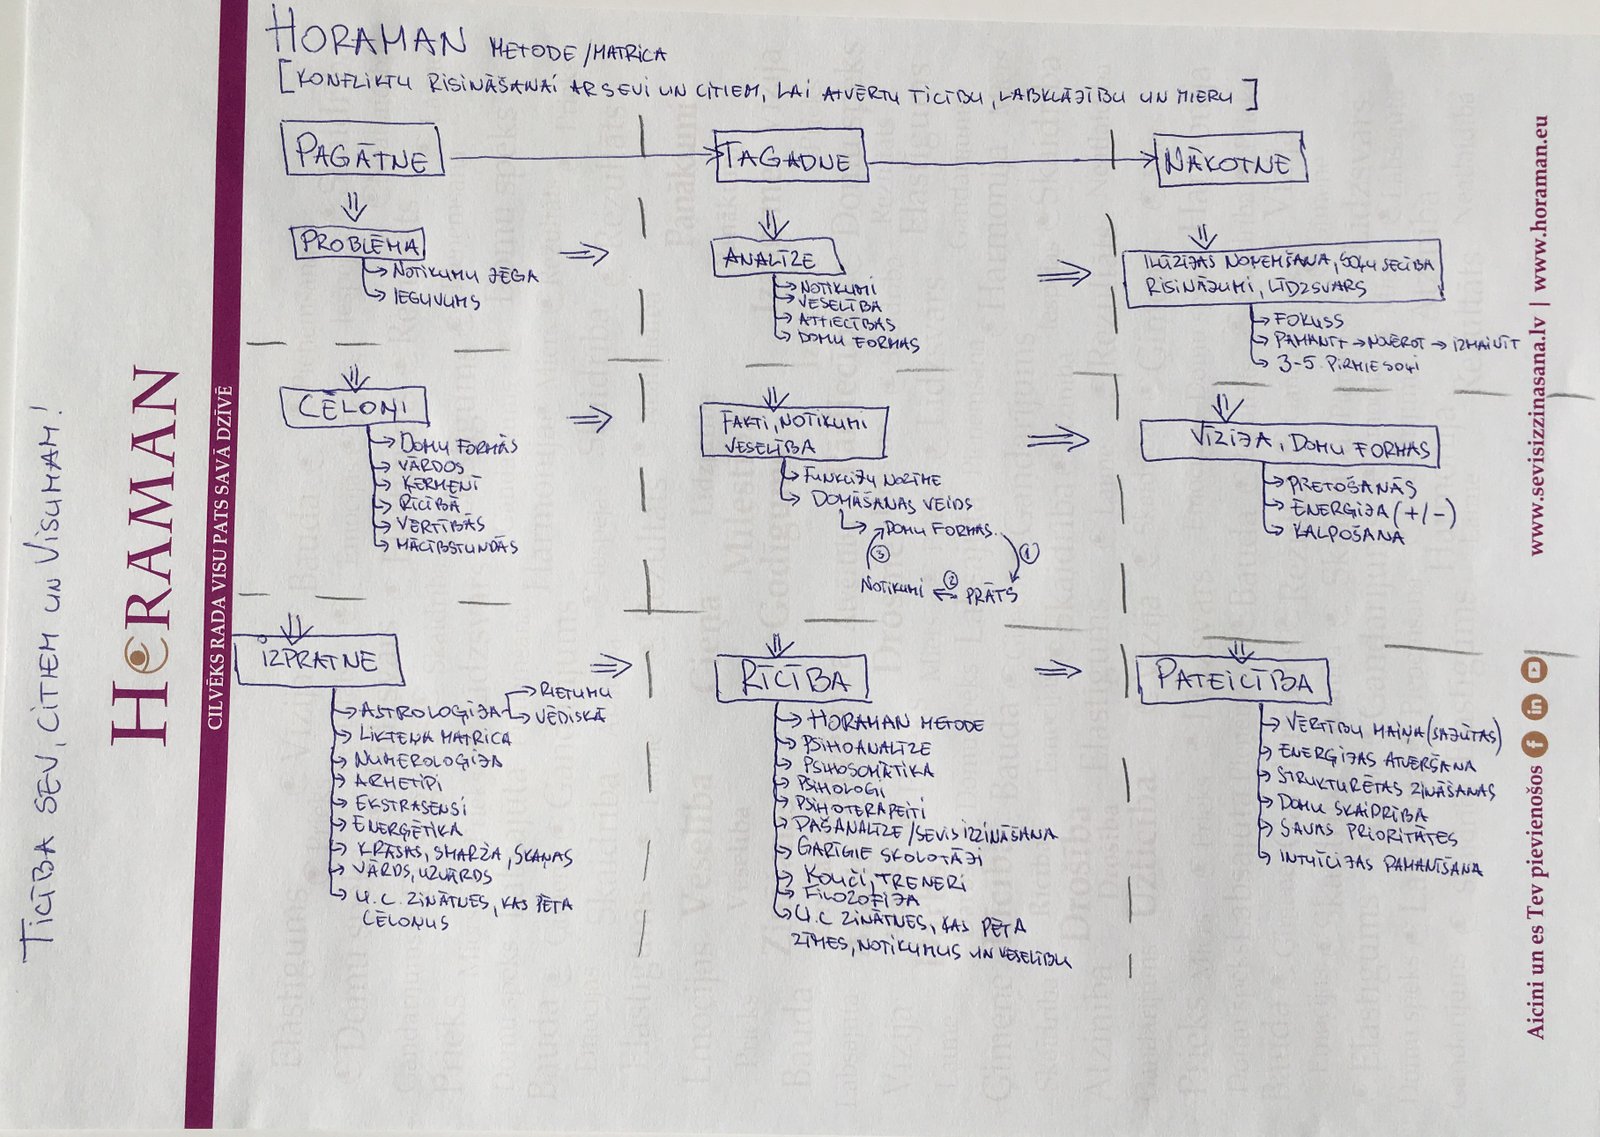 HORAMAN METODE/MATRICA
[KONFLIKTU RISINĀŠANAI AR SEVI UN CITIEM, LAI ATVĒRTU TICĪBU, LABKLĀJĪBU UN MIERU]
PAGĀTNE
TAGADNE
NĀKOTNE
PROBLĒMA
NOTIKUMU JĒGA
IEGUVUMS
ANALĪZE
NOTIKUMI
VESELĪBA
ATTIECĪBAS
DOMU FORMAS
ILŪZIJAS NOŅEMŠANA, SOĻU SECĪBA
RISINĀJUMI, LĪDZSVARS
FOKUSS
PAMANĪT → NOVĒROT → IZMAINĪT
3-5 PIRMIE SOĻI
CĒLOŅI
DOMU FORMĀS
VĀRDOS
ĶERMENĪ
RĪCĪBĀ
VĒRTĪBĀS
MĀCĪBSTUNDĀS
FAKTI, NOTIKUMI
VESELĪBA
FUNKCIJU NORĪME
DOMĀŠANAS VEIDS
DOMU FORMAS
①
PRĀTS
②
NOTIKUMI
③
VĪZIJA, DOMU FORMAS
PRETOŠANĀS
ENERĢIJA (+/-)
KALPOŠANA
IZPRATNE
ASTROLOĢIJA
RIETUMU
VĒDISKĀ
LIKTEŅA MATRICA
NUMEROLOĢIJA
ARHETIPI
EKSTRASENSI
ENERĢĒTIKA
KRĀSAS, SMARŽA, SKAŅAS
VĀRDS, UZVĀRDS
U.C. ZINĀTNES, KAS PĒTA
CĒLOŅUS
RĪCĪBA
HORAMAN METODE
PSIHOANALĪZE
PSIHOSOMĀTIKA
PSIHOLOGI
PSIHOTERAPEITI
PAŠANALĪZE/SEVIS IZZINĀŠANA
GARĪGIE SKOLOTĀJI
KOUČI, TRENERI
FILOZOFIJA
U.C ZINĀTNES, KAS PĒTA
ZĪMES, NOTIKUMUS UN VESELĪBU
PATEICĪBA
VĒRTĪBU MAIŅA (SAJŪTAS)
ENERĢIJAS ATVĒRŠANA
STRUKTURĒTAS ZINĀŠANAS
DOMU SKAIDRĪBA
SAVAS PRIORITĀTES
INTUĪCIJAS PAMANĪŠANA
TICĪBA SEV, CITIEM UN VISUMAM!
HORAMAN
CILVĒKS RADA VISU PATS SAVĀ DZĪVĒ
Aicini un es Tev pievienošos
www.sevisizzinasana.lv | www.horaman.eu